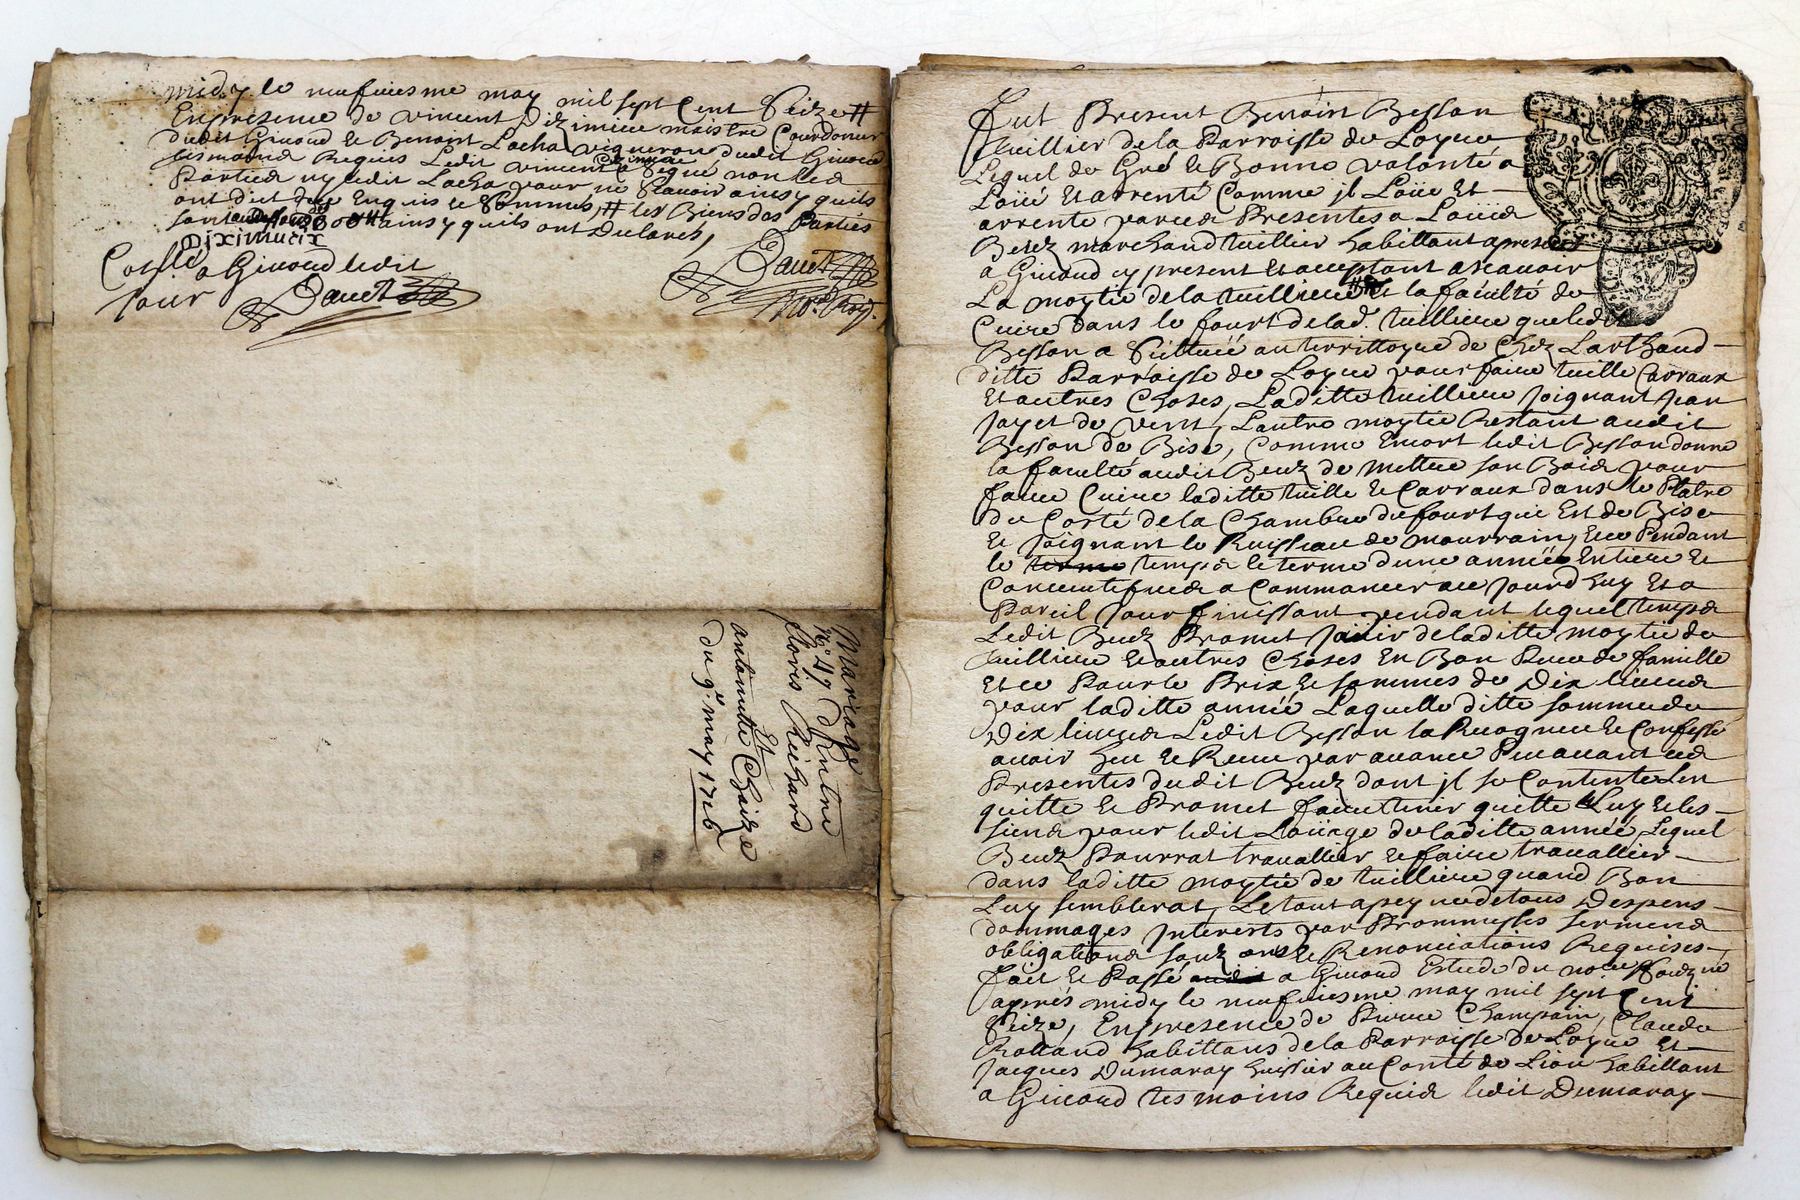 midy le neufuiesme may mil sept Cent Seize #
En presence de vincent Diximieu maistre Courdonnier
dudit Giuord & Benoist Lacha vigneron dudit Giuord
tesmoins Requis Ledit vincent Signé non les
Parties ny ledit Lacha pour ne Scauoir ainsy quils
ont dict de ce Enquis & Sommés, # les Biens des Parties
sont ainsy quils ont Declarés,
Diximieix
Conslle a Giuord ledit
jour Dauet
Dauet
No.re Roy.
Mariage
No. 49 d'Entre
Floris Richard
Et
antoinette Chaize
du 9e may 1716
Fut Present Benoist Besson
tuillier de la Parroisse de Loyre
Lequel de Gré & Bonne volonté a
Loüé Et arrenté Comme jl Loüe Et
arrente par ces Presentes a Loüis
Beuz marchand tuillier habittant apresent
a Giuord cy present Et acceptant ascauoir
La moytié de la tuilliere & la faculté de
Cuire dans le fourt de lad. tuilliere que ledit
Besson a Scittuée au territtoyre de Chez Larthaud
ditte Parroisse de Loyre pour faire tuille Carraux
Et autres Choses, Laditte tuilliere joignant par
soy et de vent, Lautre moytié Restant audit
Besson de Bise, Comme Encort ledit Besson donne
la faculté audit Beuz de mettre son Bois pour
faire Cuire laditte tuille & Carraux dans le Platre
du Costé de la Chambre du fourt qui Est de Bise
& joignant le Ruisseau de mourrain, Ece Pendant
le temps & terme dune année Entiere &
Consecutifue a Commancer ce jourdhuy Et a
Pareil jour finissant pendant lequel temps
Ledit Beuz Promet joüir de laditte moytié de
tuilliere & autres Choses En Bon Pere de famille
Et ce Pour le Prix & sommes de Dix liures
pour laditte année Laquelle ditte somme de
Dix liures Ledit Besson la Recogneu & Confessé
auoir heu & Receu par auance Peu auant ces
Presentes dudit Beuz dont jl se Contente Len
quitte & Promet faire tenir quitte Luy & les
siens pour ledit Loüage de laditte année, Lequel
Beuz Pourrat trauallier & faire trauallier
dans laditte moytié de tuilliere quand Bon
Luy semblerat, Le tout a peyne de tous Despens
dommages Interests par Prommesses serments
obligations & Renonciations Requises
fait & Passé a Giuord Estude du no.re soubzné
aprés midy le neufuiesme may mil sept Cent
Seize, En presence de Pierre Champain, Claude
Rolland habittans de la Parroisse de Loyre Et
Jacques Dumaray huissier au Conté de Lion habittant
a Giuord tesmoins Requis ledit Dumaray